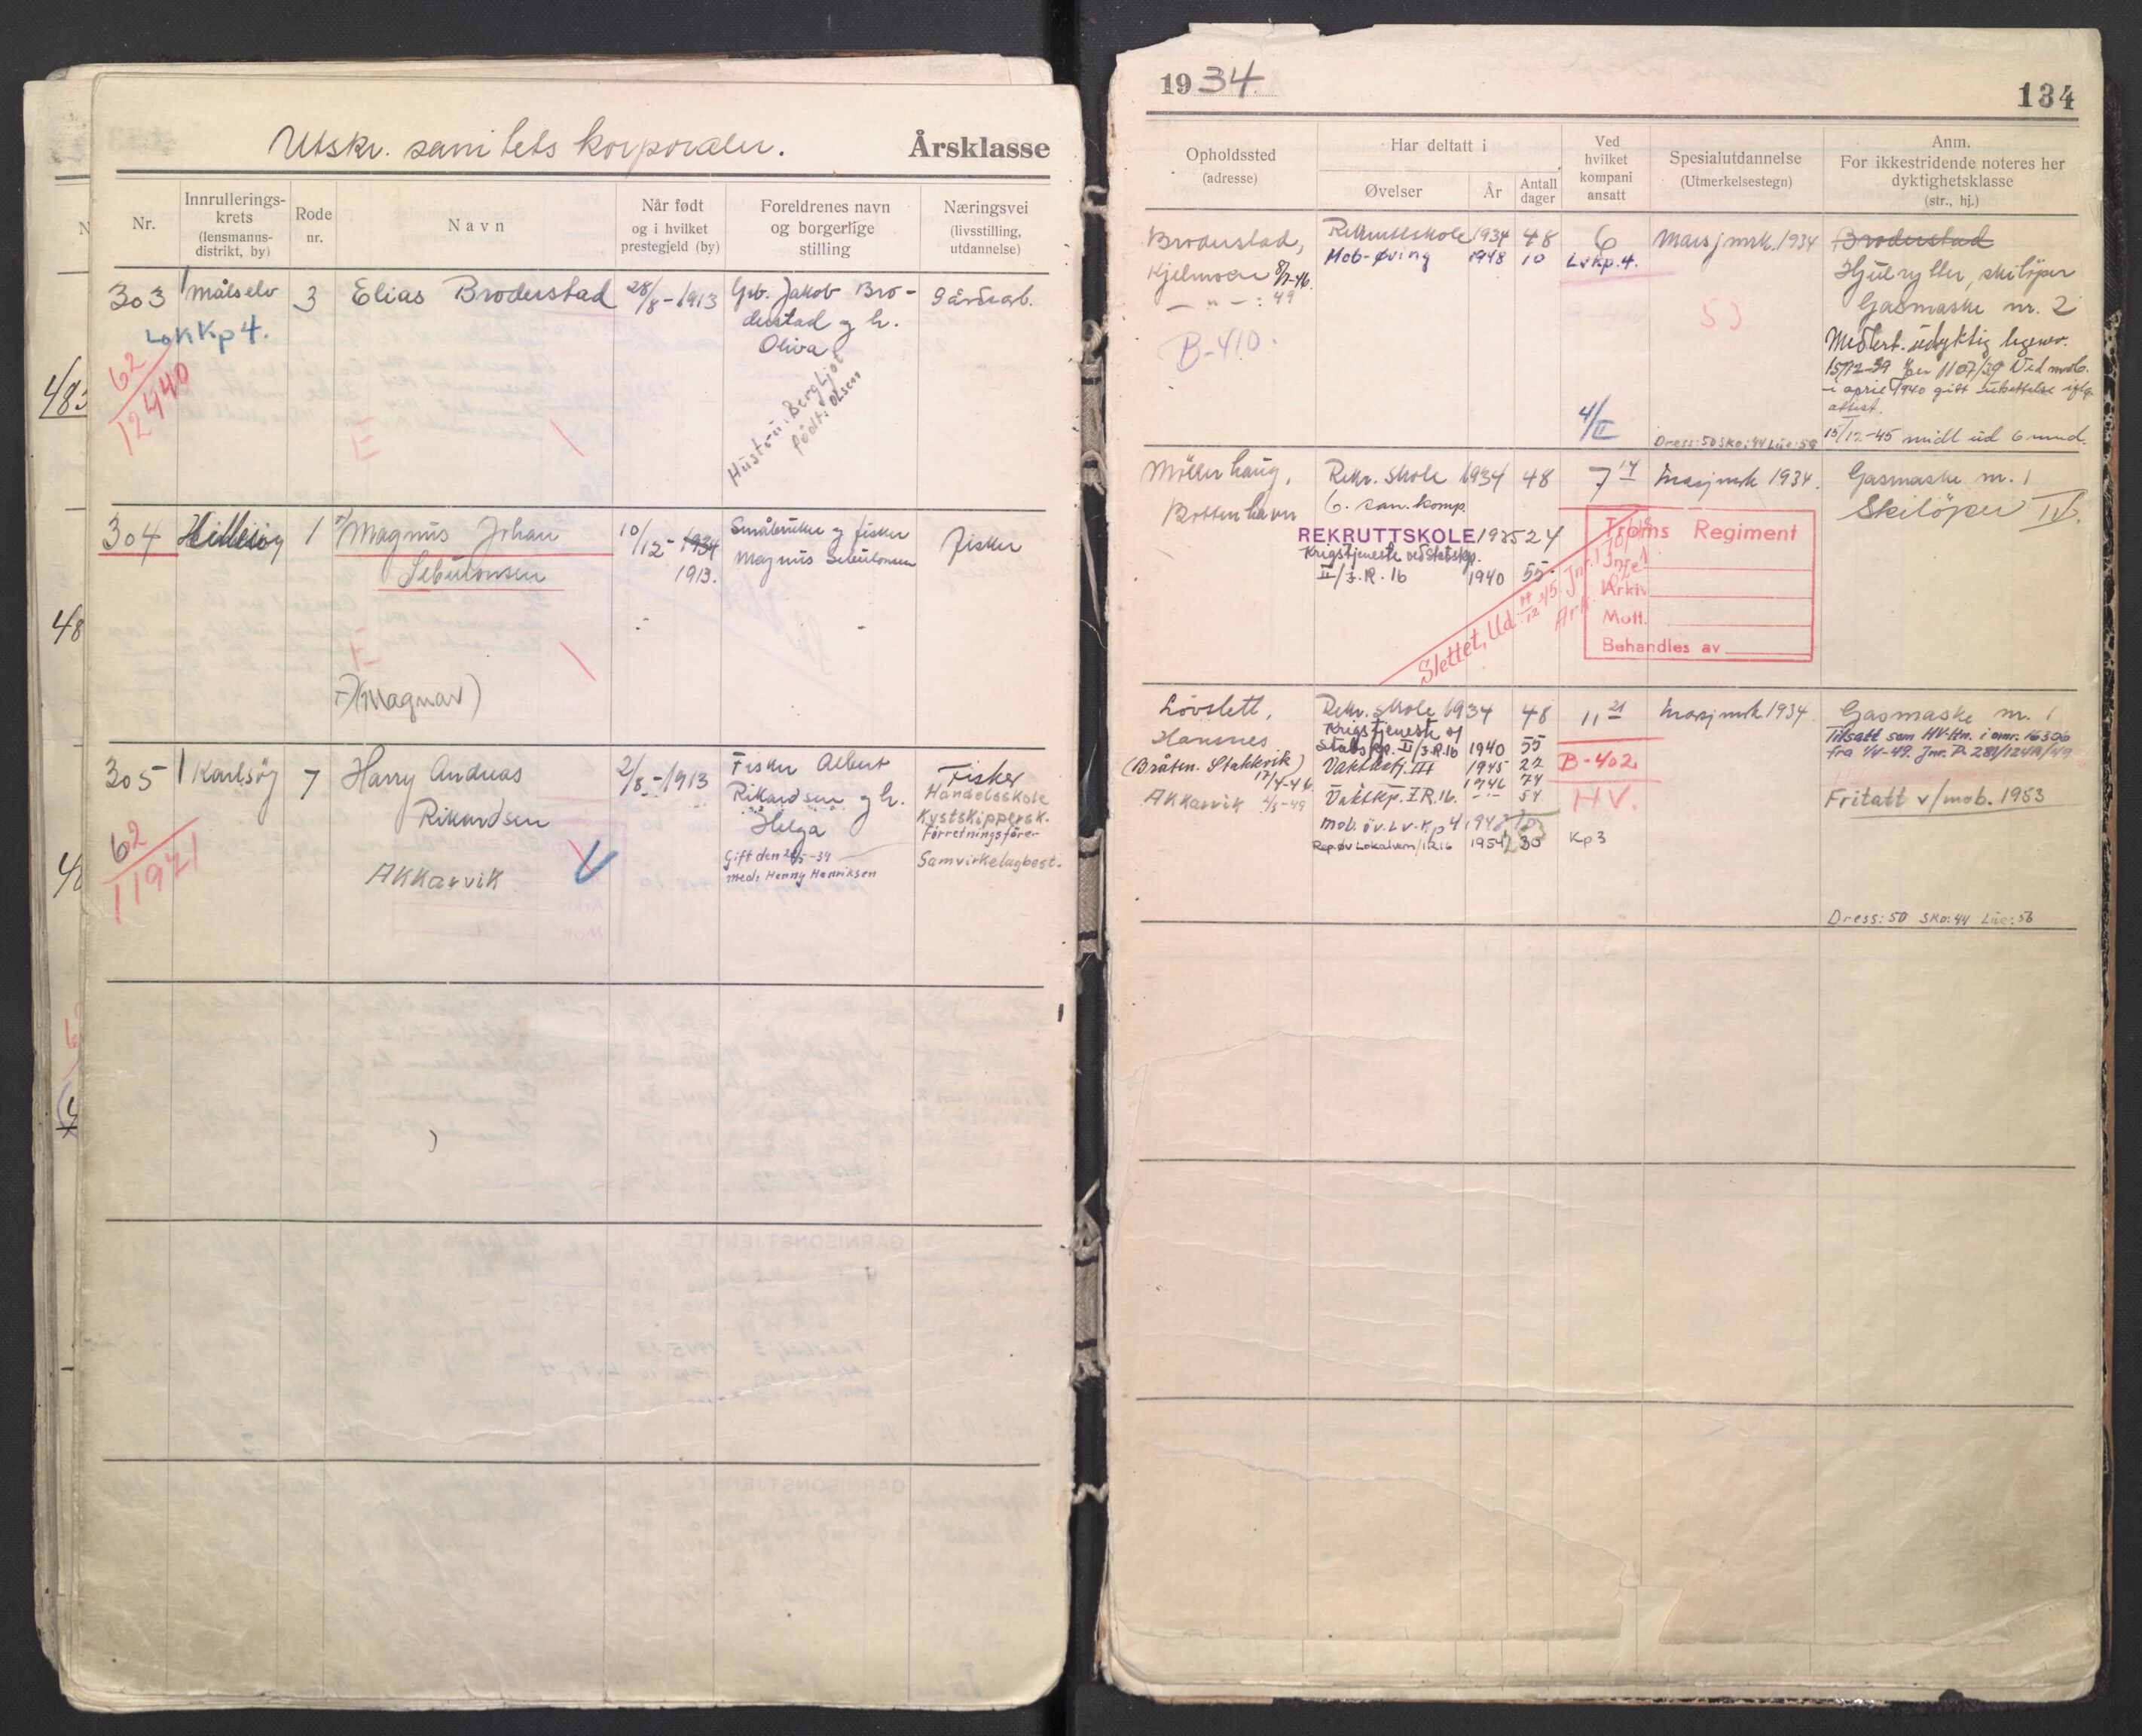 Utskr. sanitets korporaler.
Årsklasse
Nr.
Innrullerings-
krets
(lensmanns-
distrikt, by)
Rode
nr.
Navn
Når født
og i hvilket
prestegjeld (by)
Foreldrenes navn
og borgerlige
stilling
Næringsvei
(livsstilling,
utdannelse)
303
Målselv
3
Elias Broderstad
28/8-1913
Gpb. Jakob Bro-
derstad og h.
Oliva
Hustru: Bergljot
født: Olsen
gårdsarb.
LokKp 4.
62
12440
E
304
Hillesøy
1
Magnus Johan
Sebulonsen
(Magnar)
10/12-1934
1913.
Småbruker og fisker
Magnus Sebulonsen
Fisker
305
Karlsøy
7
Harry Andreas
Rikardsen
Akkarvik
2/8-1913
Fisker Albert
Rikardsen og h.
Helga
Gift den 20/5-34
med: Henny Henriksen
Fisker
Handelsskole
Kystskippersk.
Forretningsfører
Samvirkelagbest.
62
11921
1934
134
Opholdssted
(adresse)
Har deltatt i
Øvelser
År
Antall
dager
Ved
hvilket
kompani
ansatt
Spesialutdannelse
(Utmerkelsestegn)
Anm.
For ikkestridende noteres her
dyktighetsklasse
(str., hj.)
Broderstad,
Kjelmoen 8/7-46.
— " — : 49
B-410.
Rekruttskole 1934 48
Mob-øving 1948 10
6
Lvkp. 4.
4/II
Marsjmrk. 1934
53
Dress: 50 Sko: 44 Lue: 59
Broderstad
Hjulrytter, skiløper
Gasmaske nr. 2
Med. ert. udyktig legeun.
15/12-39 Jnr 1107/39 Ved mob.
i april 1940 gitt utsettelse iflg.
attest.
15/12-45 midl ud 6 mnd.
Møllerhaug,
Bottenhavn
Rekr. skole 1934 48
6. san. komp.
REKRUTTSKOLE 1935 24
Krigstjeneste ved Stabskp.
II/I.R. 16 1940 55
7 14
Marsjmrk 1934.
Troms Regiment
Jnr.
Arkiv
Mott.
Behandles av
Slettet, Ud.
Gasmaske nr. 1
Skiløper IV.
Løvslett,
Hansnes
(Bråten. Stakkvik)
17/4-46
Akkarvik 4/3-49
Rekr. skole 1934 48
Krigstjeneste v/
Stabskp. II/I.R. 16 1940 55
Vaktbatj. III 1945 22
1946 74
Vaktkp. I.R. 16. - " - 54
Mob. øv. Lv. Kp 4 1948 10
Rep øv Lokalvern/IR16 1954 30
11 21
B-402
HV.
Kp 3
Marsjmrk 1934
Gasmaske nr. 1
Tilsatt som HV-Kn. i omr. 16306
fra 1/4-49. Jnr. P. 281/124/R/49
Fritatt v/mob. 1953
Dress: 50 Sko: 44 Lue: 56